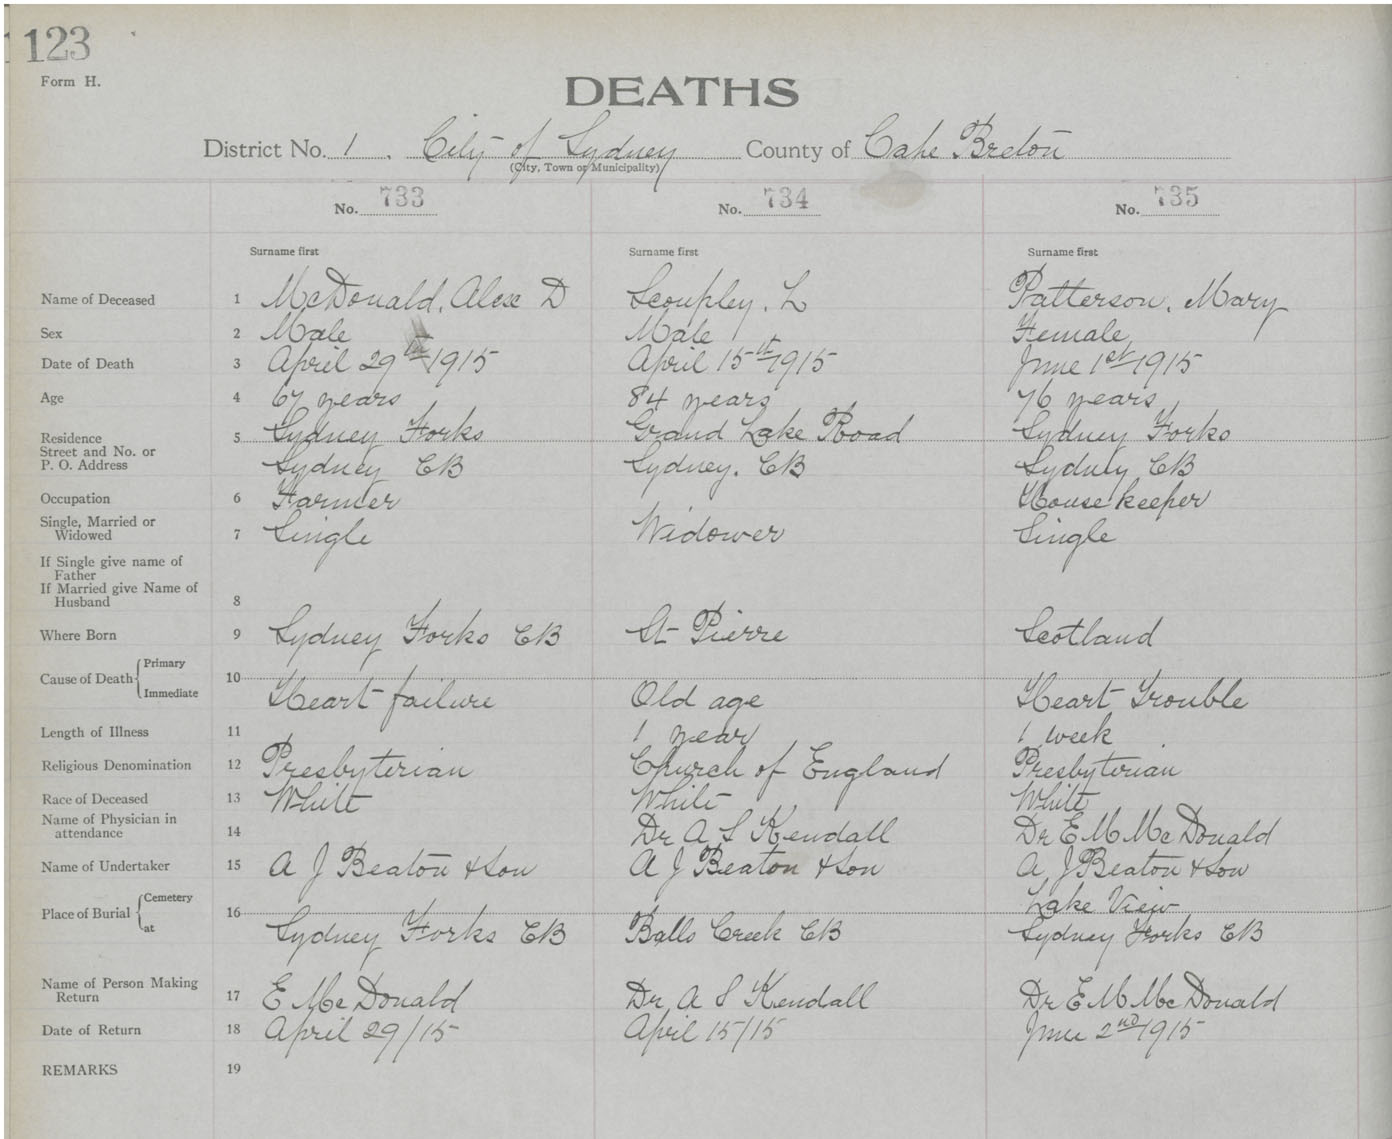 123
Form H.
DEATHS
District No. 1. City of Sydney County of Cape Breton
(City, Town or Municipality)
No. 733 No. 734 No. 735
Surname first Surname first Surname first
Name of Deceased 1 McDonald, Alex D Scoupley, L Patterson, Mary
Sex 2 Male Male Female
Date of Death 3 April 29th 1915 April 15th 1915 June 1st 1915
Age 4 67 years 84 years 76 years
Residence 5 Sydney Forks Grand Lake Road Sydney Forks
Street and No. or
P. O. Address Sydney CB Sydney. CB Sydney CB
Occupation 6 Farmer House keeper
Single, Married or
Widowed 7 Single Widower Single
If Single give name of
Father
If Married give Name of
Husband 8
Where Born 9 Sydney Forks CB St Pierre Scotland
Cause of Death { Primary 10
Immediate Heart failure Old age Heart Trouble
Length of Illness 11 1 year 1 week
Religious Denomination 12 Presbyterian Church of England Presbyterian
Race of Deceased 13 White White White
Name of Physician in
attendance 14 Dr A S Kendall Dr E M McDonald
Name of Undertaker 15 A J Beaton & Son A J Beaton & Son A J Beaton & Son
Place of Burial { Cemetery 16 Lake View
at Sydney Forks CB Balls Creek CB Sydney Forks CB
Name of Person Making
Return 17 E McDonald Dr A S Kendall Dr E M McDonald
Date of Return 18 April 29/15 April 15/15 June 2nd 1915
REMARKS 19